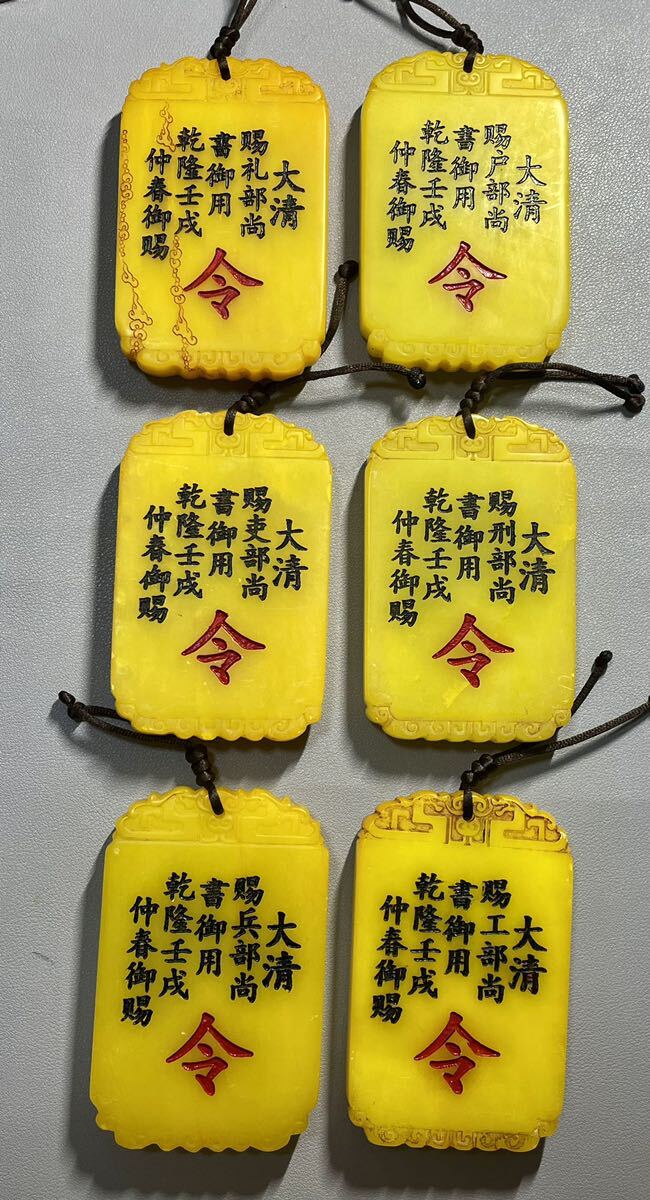 大清
赐礼部尚
書御用
乾隆壬戌
仲春御赐
令
大清
赐户部尚
書御用
乾隆壬戌
仲春御赐
令
大清
赐吏部尚
書御用
乾隆壬戌
仲春御赐
令
大清
赐刑部尚
書御用
乾隆壬戌
仲春御赐
令
大清
赐兵部尚
書御用
乾隆壬戌
仲春御赐
令
大清
赐工部尚
書御用
乾隆壬戌
仲春御赐
令